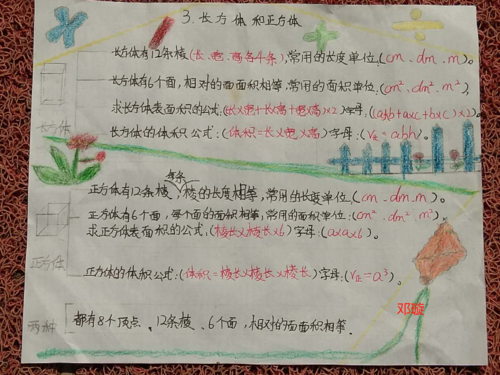 3.长方体和正方体
长方体有12条棱(长、宽、高各4条),常用的长度单位:(cm、dm、m)。
长方体有6个面,相对的面面积相等,常用的面积单位:(cm²、dm²、m²)
求长方体表面积的公式:(长×宽+长×高+宽×高)×2)字母:((a×b+a×c+b×c)×2)。
长方体
长方体的体积公式:(体积=长×宽×高)字母:(V=abh)。
每条
正方体有12条棱,棱的长度相等,常用的长度单位(cm、dm、m)。
正方体有6个面,每个面的面积相等,常用的面积单位:(cm²、dm²、m²)
求正方体表面积的公式:(棱长×棱长×6)字母:(a×a×6)。
正方体
正方体的体积公式:(体积=棱长×棱长×棱长)字母:(V正=a³)。
邓璇
都有8个顶点、12条棱、6个面,相对的面面积相等。